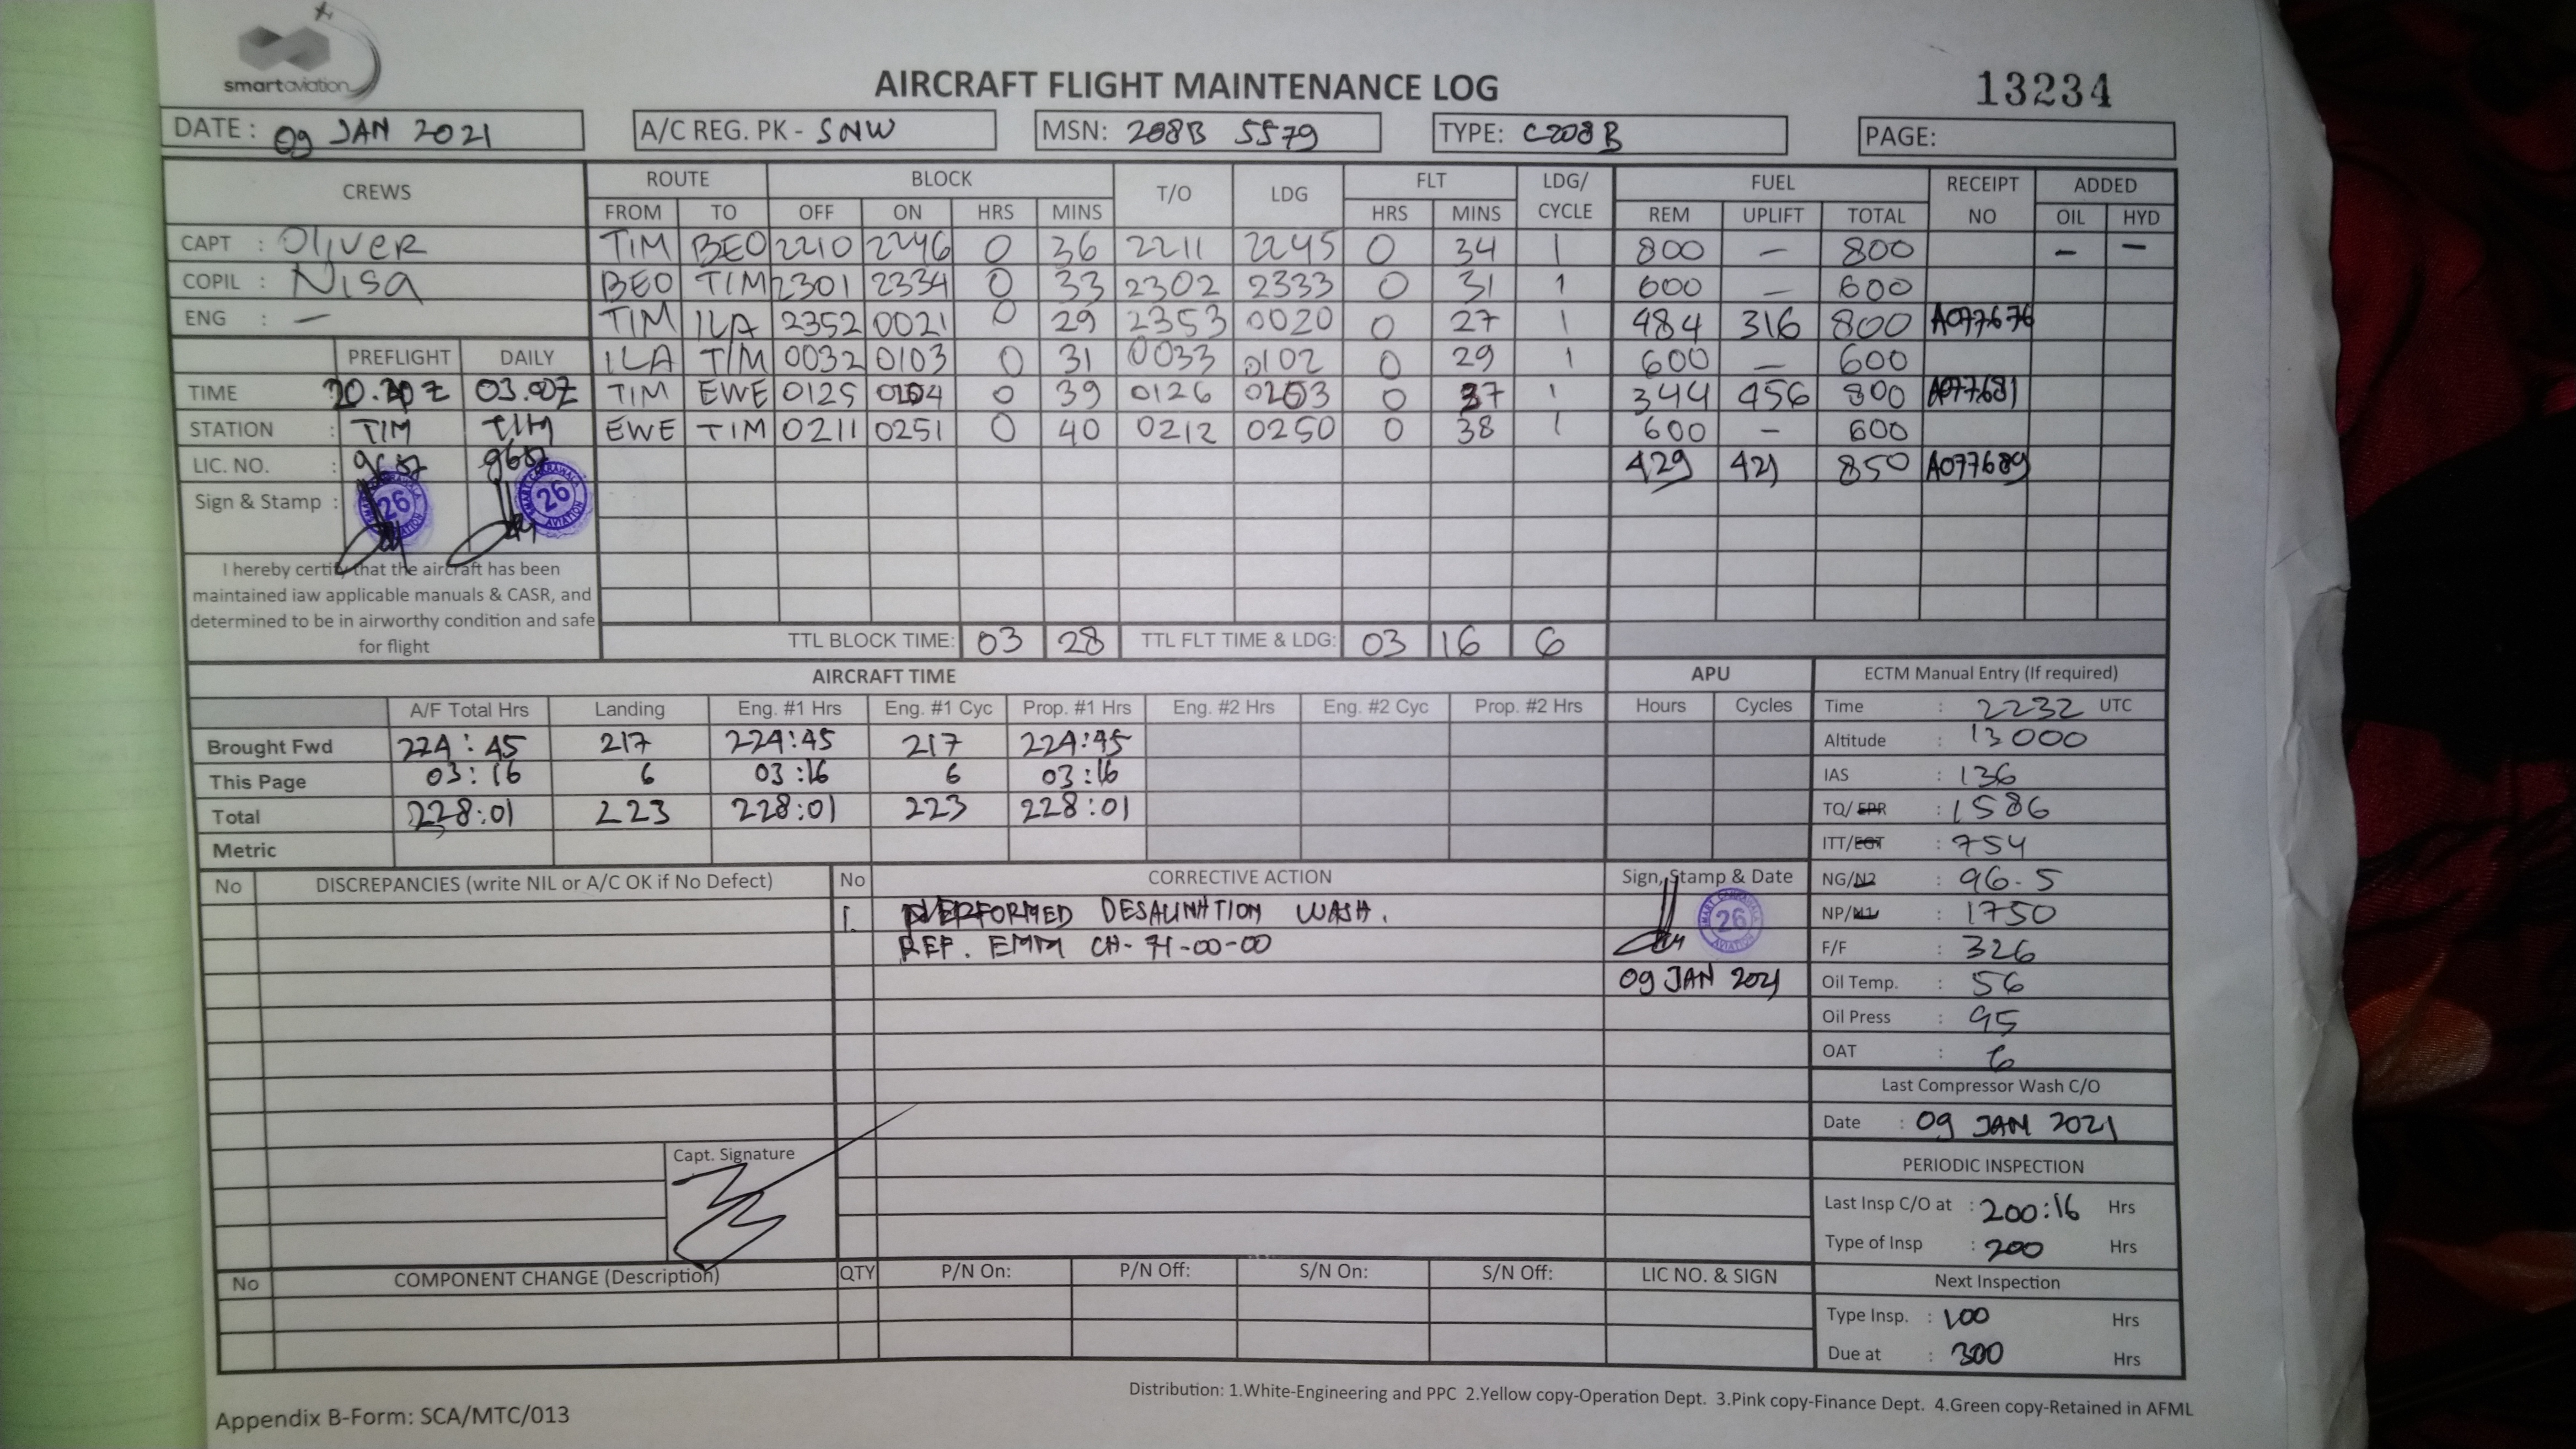 smartaviation
AIRCRAFT FLIGHT MAINTENANCE LOG
13234
DATE : 09 JAN 2021
A/C REG. PK - SNW
MSN: 208B 5579
TYPE: C208B
PAGE:
CREWS ROUTE BLOCK T/O LDG FLT LDG/ CYCLE FUEL RECEIPT NO ADDED
FROM TO OFF ON HRS MINS HRS MINS REM UPLIFT TOTAL OIL HYD
CAPT : Oliver TIM BEO 2210 2246 0 36 2211 2245 0 34 1 800 – 800 – –
COPIL : Nisa BEO TIM 2301 2334 0 33 2302 2333 0 31 1 600 – 600
ENG : – TIM ILA 2352 0021 0 29 2353 0020 0 27 1 484 316 800 A077676
PREFLIGHT DAILY ILA TIM 0032 0103 0 31 0033 0102 0 29 1 600 – 600
TIME 03.00Z TIM EWE 0125 0204 0 39 0126 0203 0 37 1 344 456 800 A077681
STATION : TIM TIM EWE TIM 0211 0251 0 40 0212 0250 0 38 1 600 – 600
LIC. NO. : 429 421 850 A077689
Sign & Stamp : 26 26
I hereby certify that the aircraft has been
maintained iaw applicable manuals & CASR, and
determined to be in airworthy condition and safe
for flight
TTL BLOCK TIME: 03 28 TTL FLT TIME & LDG: 03 16 6
AIRCRAFT TIME APU
A/F Total Hrs Landing Eng. #1 Hrs Eng. #1 Cyc Prop. #1 Hrs Eng. #2 Hrs Eng. #2 Cyc Prop. #2 Hrs Hours Cycles
Brought Fwd 224:45 217 224:45 217 224:45
This Page 03:16 6 03:16 6 03:16
Total 228:01 223 228:01 223 228:01
Metric
ECTM Manual Entry (If required)
Time : 2232 UTC
Altitude : 13000
IAS : 136
TQ/EPR : 1586
ITT/EGT : 754
NG/N2 : 96.5
NP/N1 : 1750
F/F : 326
Oil Temp. : 56
Oil Press : 95
OAT : 6
Last Compressor Wash C/O
Date : 09 JAN 2021
PERIODIC INSPECTION
Last Insp C/O at : 200:16 Hrs
Type of Insp : 200 Hrs
Next Inspection
Type Insp. : 100 Hrs
Due at : 300 Hrs
No DISCREPANCIES (write NIL or A/C OK if No Defect) No CORRECTIVE ACTION Sign, Stamp & Date
1. PERFORMED DESALINATION WASH.
REF. EMM CH-71-00-00
26
09 JAN 2021
Capt. Signature
No COMPONENT CHANGE (Description) QTY P/N On: P/N Off: S/N On: S/N Off: LIC NO. & SIGN
Distribution: 1.White-Engineering and PPC 2.Yellow copy-Operation Dept. 3.Pink copy-Finance Dept. 4.Green copy-Retained in AFML
Appendix B-Form: SCA/MTC/013